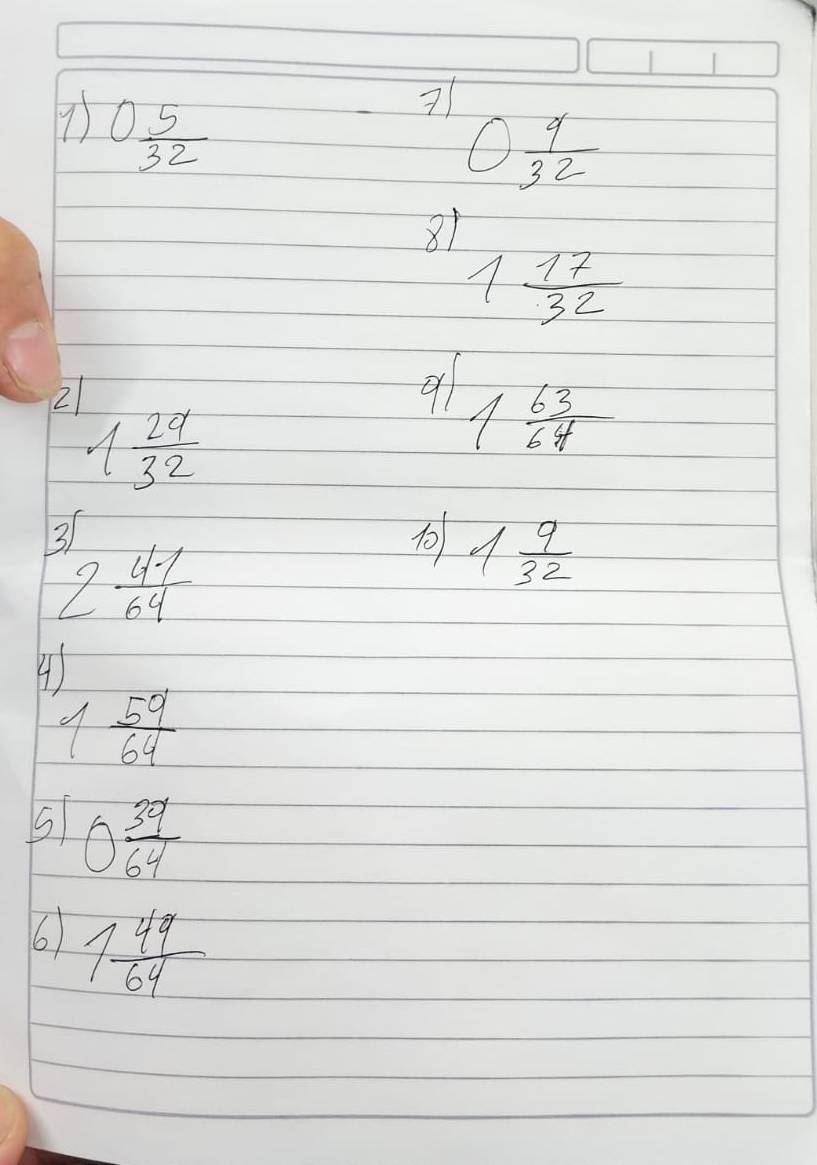 1) 0 5/32
2) 1 29/32
3) 2 41/64
4) 1 59/64
5) 0 39/64
6) 1 49/64
7) 0 9/32
8) 1 17/32
9) 1 63/64
10) 1 9/32